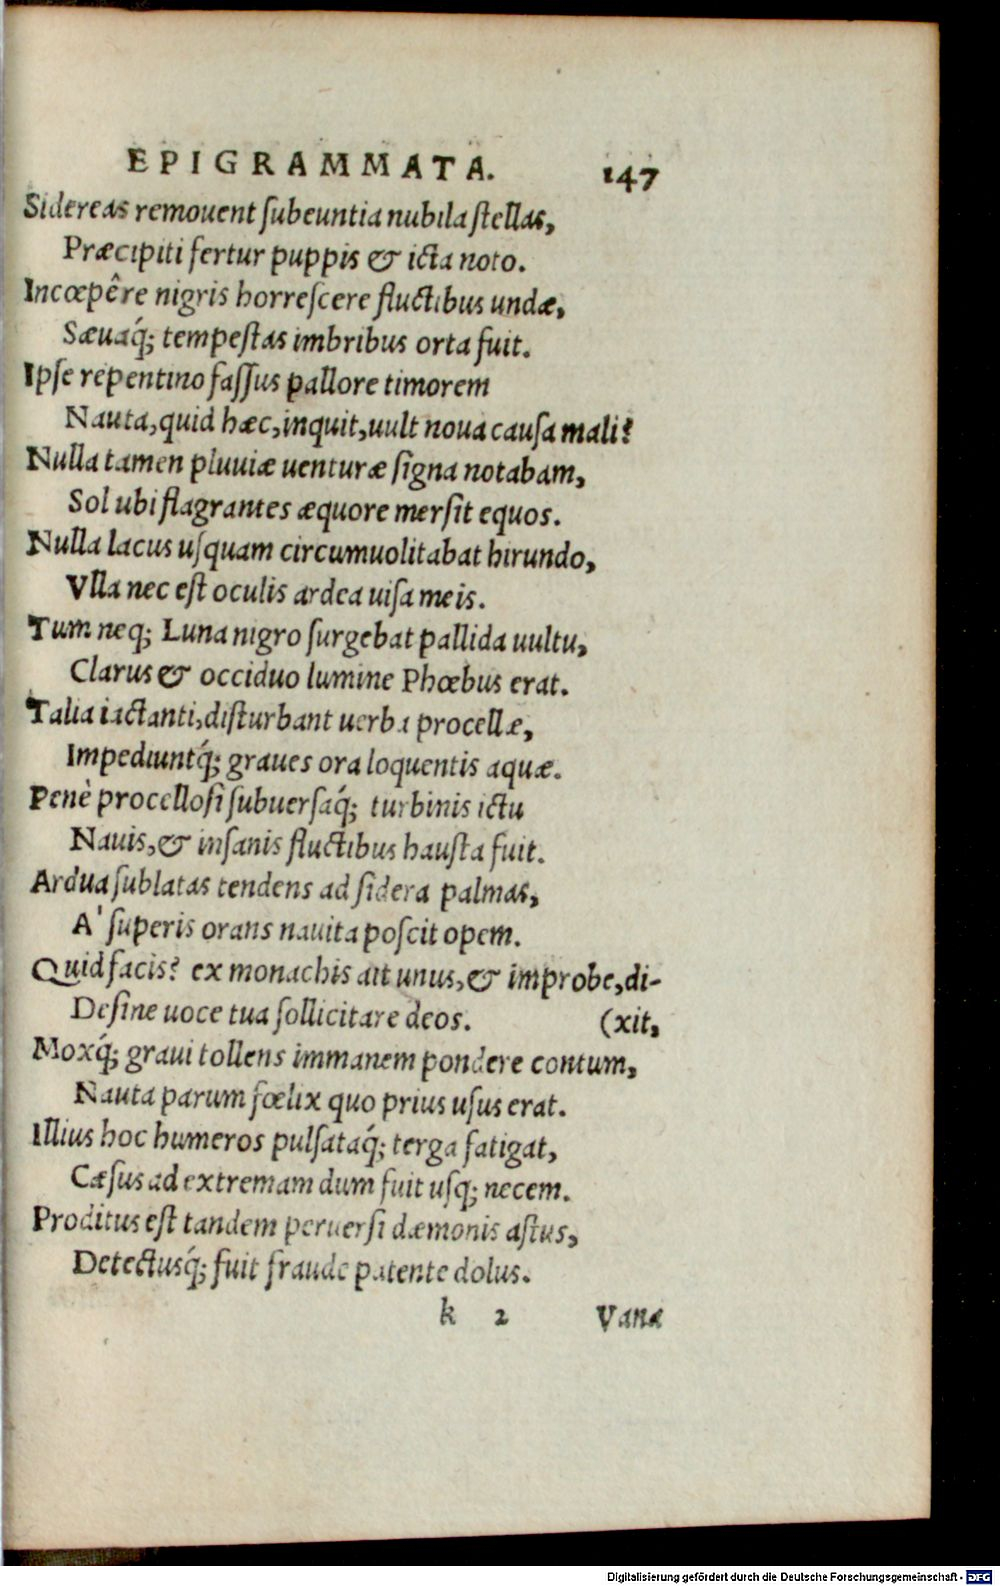 EPIGRAMMATA. 147
Sidereas remouent ſubeuntia nubila ſtellas,
Præcipiti fertur puppis & icta noto.
Incœpêre nigris horreſcere fluctibus undæ,
Sæuaq́; tempeſtas imbribus orta fuit.
Ipſe repentino faſſus pallore timorem
Nauta, quid hæc, inquit, uult noua cauſa mali?
Nulla tamen pluuiæ uenturæ ſigna notabam,
Sol ubi flagrantes æquore merſit equos.
Nulla lacus uſquam circumuolitabat hirundo,
Vlla nec eſt oculis ardea uiſa meis.
Tum neq; Luna nigro ſurgebat pallida uultu,
Clarus & occiduo lumine Phœbus erat.
Talia iactanti, diſturbant uerba procellæ,
Impediuntq́; graues ora loquentis aquæ.
Penè procelloſi ſubuerſaq́; turbinis ictu
Nauis, & inſanis fluctibus hauſta fuit.
Ardua ſublatas tendens ad ſidera palmas,
A' ſuperis orans nauita poſcit opem.
Quid facis? ex monachis ait unus, & improbe, di-
Deſine uoce tua ſollicitare deos. (xit,
Moxq́; graui tollens immanem pondere contum,
Nauta parum fœlix quo prius uſus erat.
Illius hoc humeros pulſataq́; terga fatigat,
Cæſus ad extremam dum fuit uſq; necem.
Proditus eſt tandem peruerſi dæmonis aſtus,
Detectusq́; fuit fraude patente dolus.
k 2 Vanæ
Digitalisierung gefördert durch die Deutsche Forschungsgemeinschaft - DFG